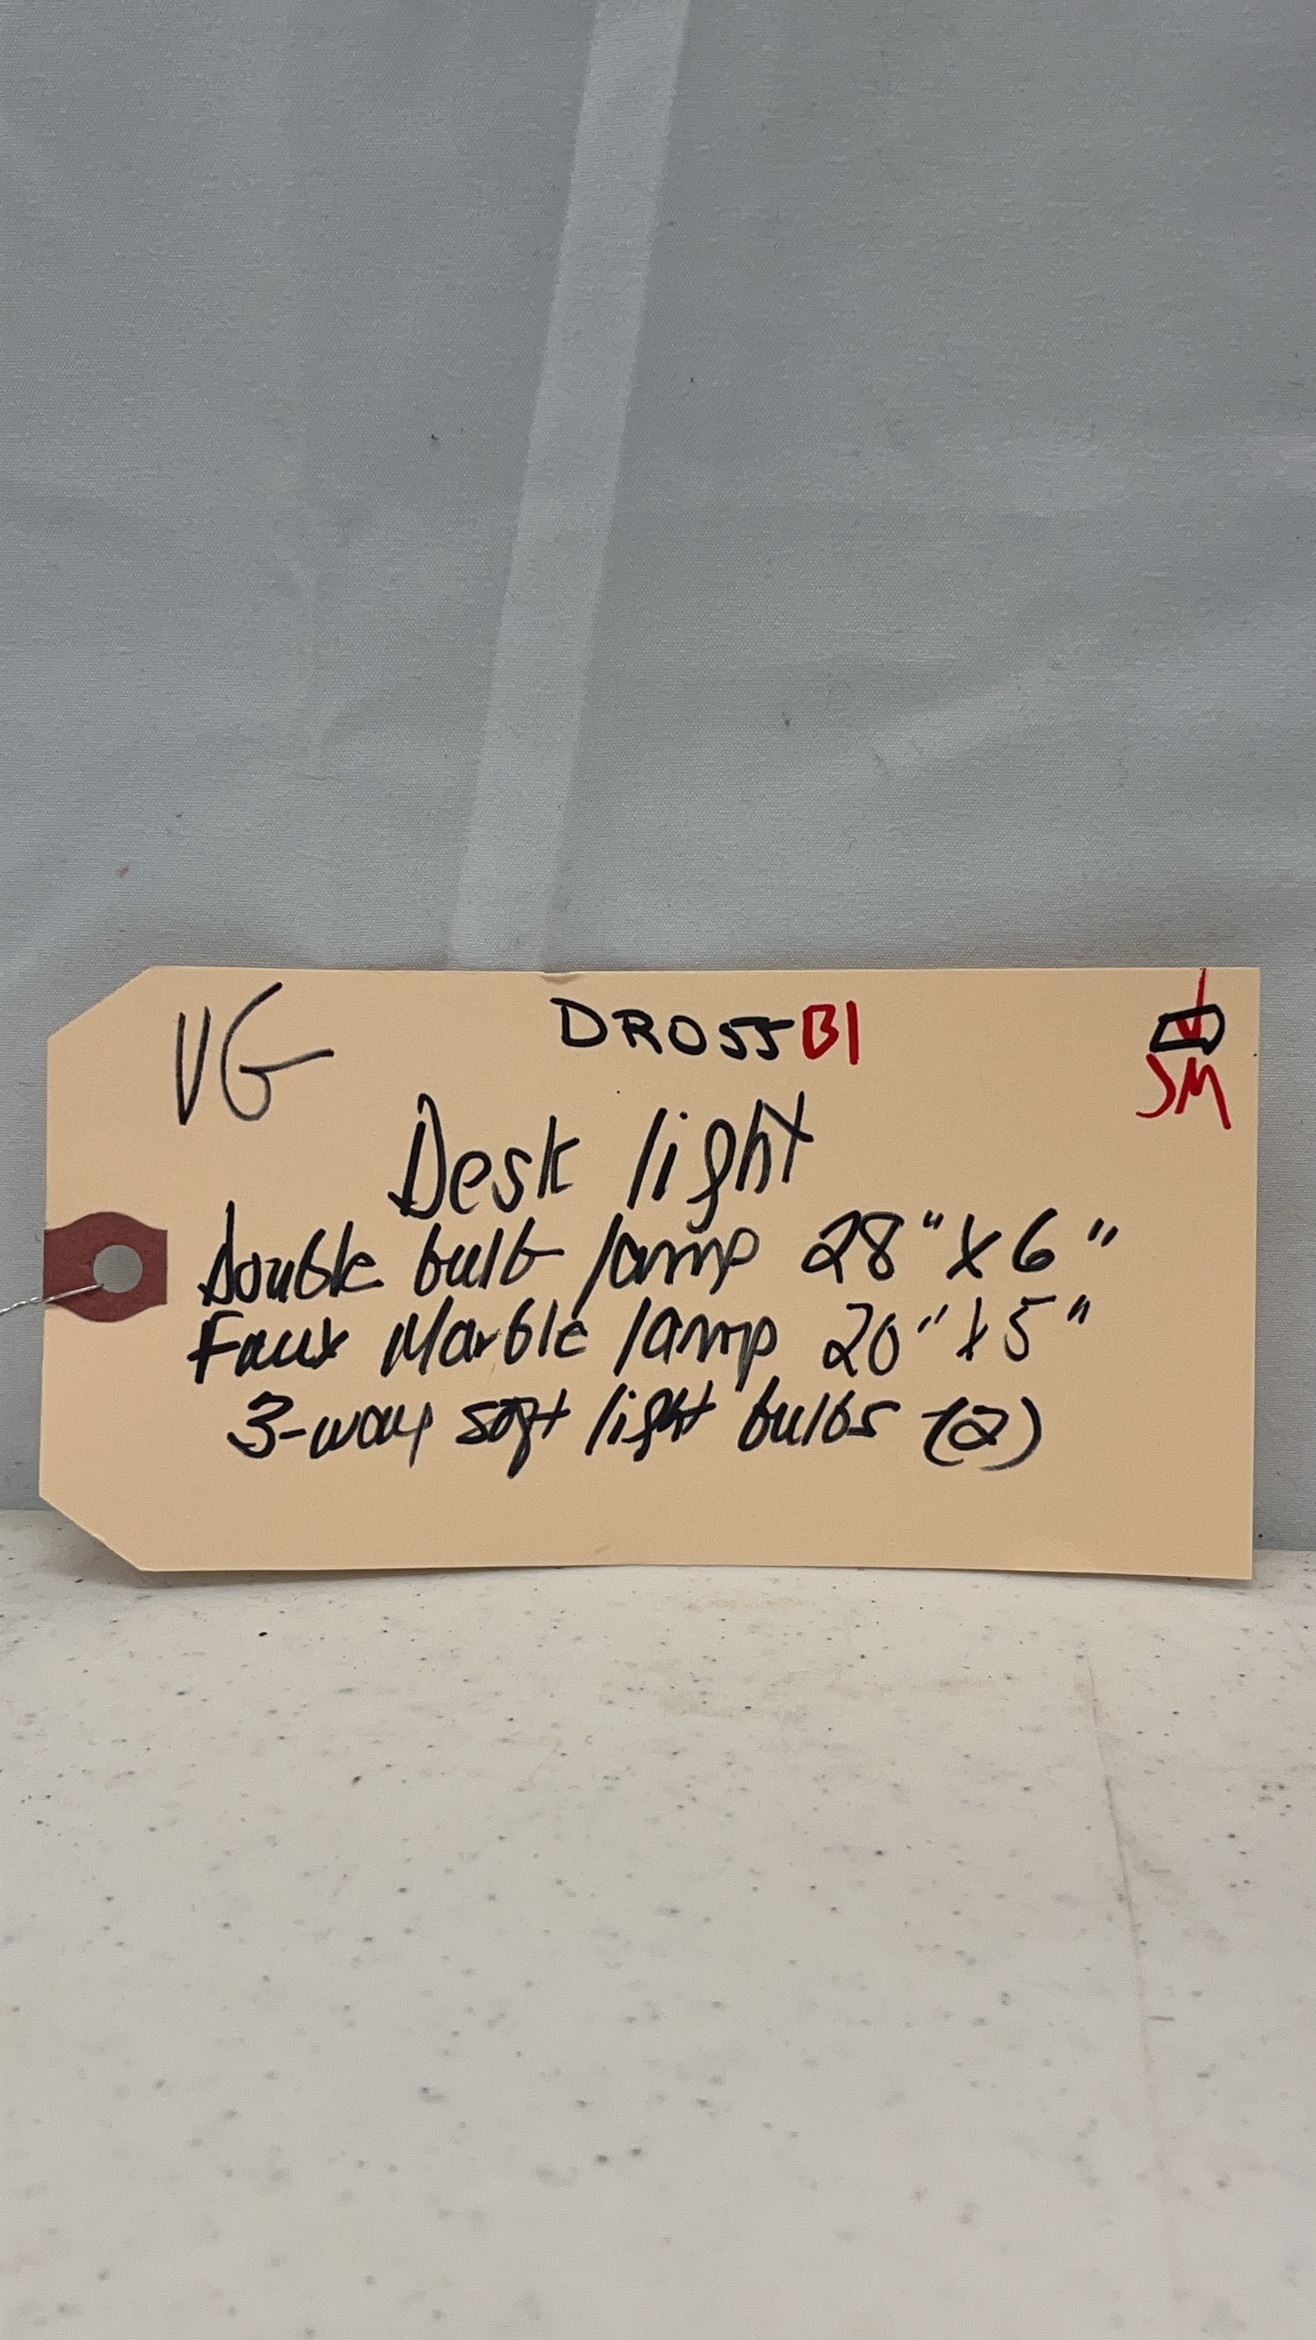 VG DR055B1
JM
Desk light
Double bulb lamp 28" X 6"
Faux Marble lamp 20" X 5"
3-way soft light bulbs (2)